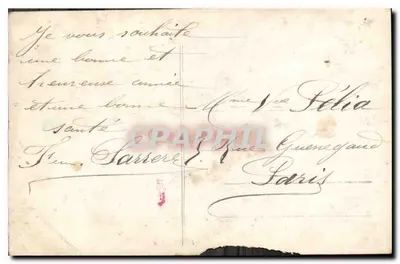 Je vous souhaite
une bonne et
heureuse année
et une bonne
santé
Sarrere
Mme Vve Pélia
5 Rue Guenegaud
Paris
CPAPHIL